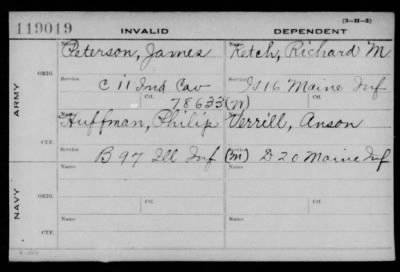 (3-H-3)
119019 INVALID DEPENDENT
Name Name
Peterson, James Ketch, Richard M
ARMY ORIG. Service Service
C 11 Ind Cav I S16 Maine Inf
Ctf. Ctf.
78633 (M)
Huffman, Philip Verrill, Anson
CTF. Service
B 97 Ill Inf (M) D 20 Maine Inf
NAVY ORIG. Name Name
Service Service
Ctf. Ctf.
CTF. Name Name